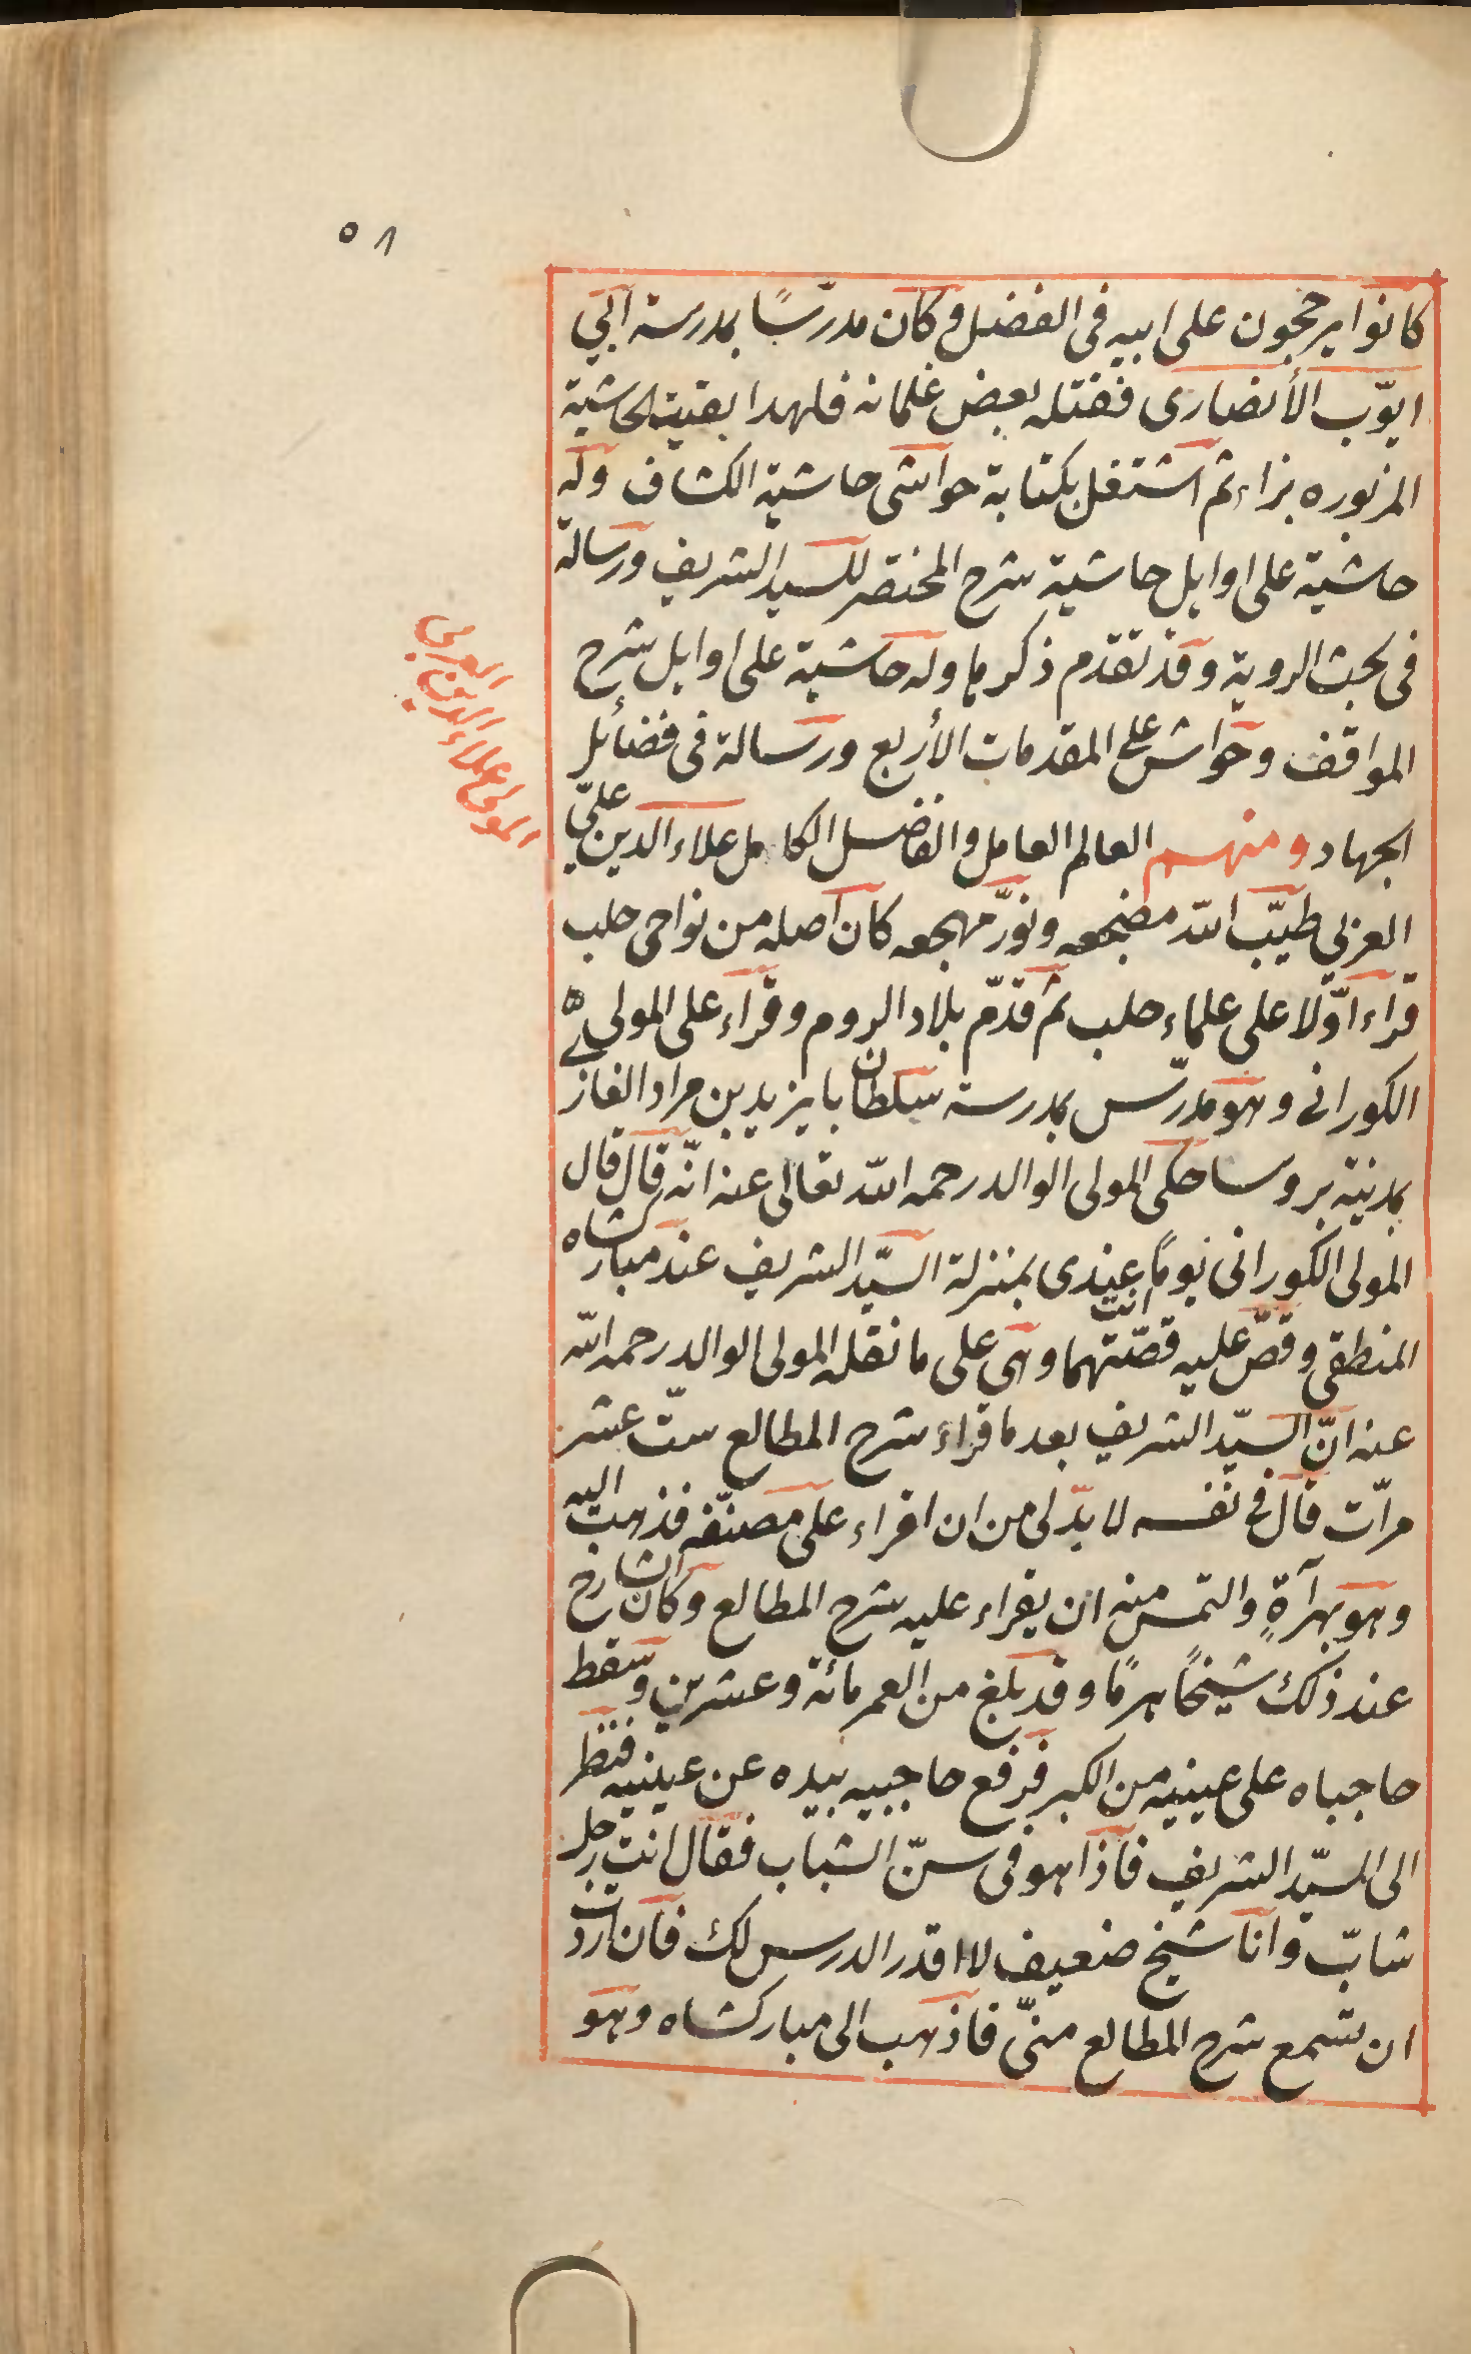 ٥٨
كانوا يرجحون على ابيه فى الفضل وكان مدرّسًا بمدرسة ابي
ايوّب الأنصارى فقتله بعض غلمانه فلهذا بقيت الحاشية
المزبوره بزاء ثم اشتغل بكتابة حواشى حاشية الكشاف وله
حاشية على اوايل حاشية شرح المختصر للسيد الشريف ورسالة
فى بحث الروية وقد تقدم ذكرها وله حاشية على اوايل شرح
المواقف وحواش على المقدمات الأربع ورسالة فى فضائل
الجهاد ومنهم العالم العامل والفاضل الكامل علاء الدين عليّ
العربي طيّب الله مضجعه ونوّر مهجعه كان اصله من نواحى حلب
قراء اوّلا على علماء حلب ثم قدّم بلاد الروم وقراء على المولى
الكورانى وهو مدرّس بمدرسة سلطان بايزيد بن مراد الغاز
بمدينة بروسا حكى المولى الوالد رحمه الله تعالى عنه انّه قال قال
المولى الكورانى يومًا انت عندى بمنزلة السيّد الشريف عند مباركشاه
المنطقى وقصّ عليه قصّتهما وهى على ما نقله المولى الوالد رحمه الله
عنه انّ السيّد الشريف بعد ما قراء شرح المطالع ستّ عشر
مرّات قال فى نفسه لا بدّ لى من ان اقراء على مصنّفه فذهب اليه
وهو بهرآةٍ والتمس منه ان يقراء عليه شرح المطالع وكان الشارح
عند ذلك شيخًا هرمًا وقد بلغ من العمر مائة وعشرين وسقط
حاجباه على عينيه من الكبر فرفع حاجبيه بيده عن عينيه فنظر
الى السيّد الشريف فاذا هو فى سنّ الشباب فقال انت رجل
شابّ وانا شيخ ضعيف لا اقدر الدرس لك فان اردت
ان تسمع شرح المطالع منّى فاذهب الى مباركشاه وهو
المولى علاء الدين العربى